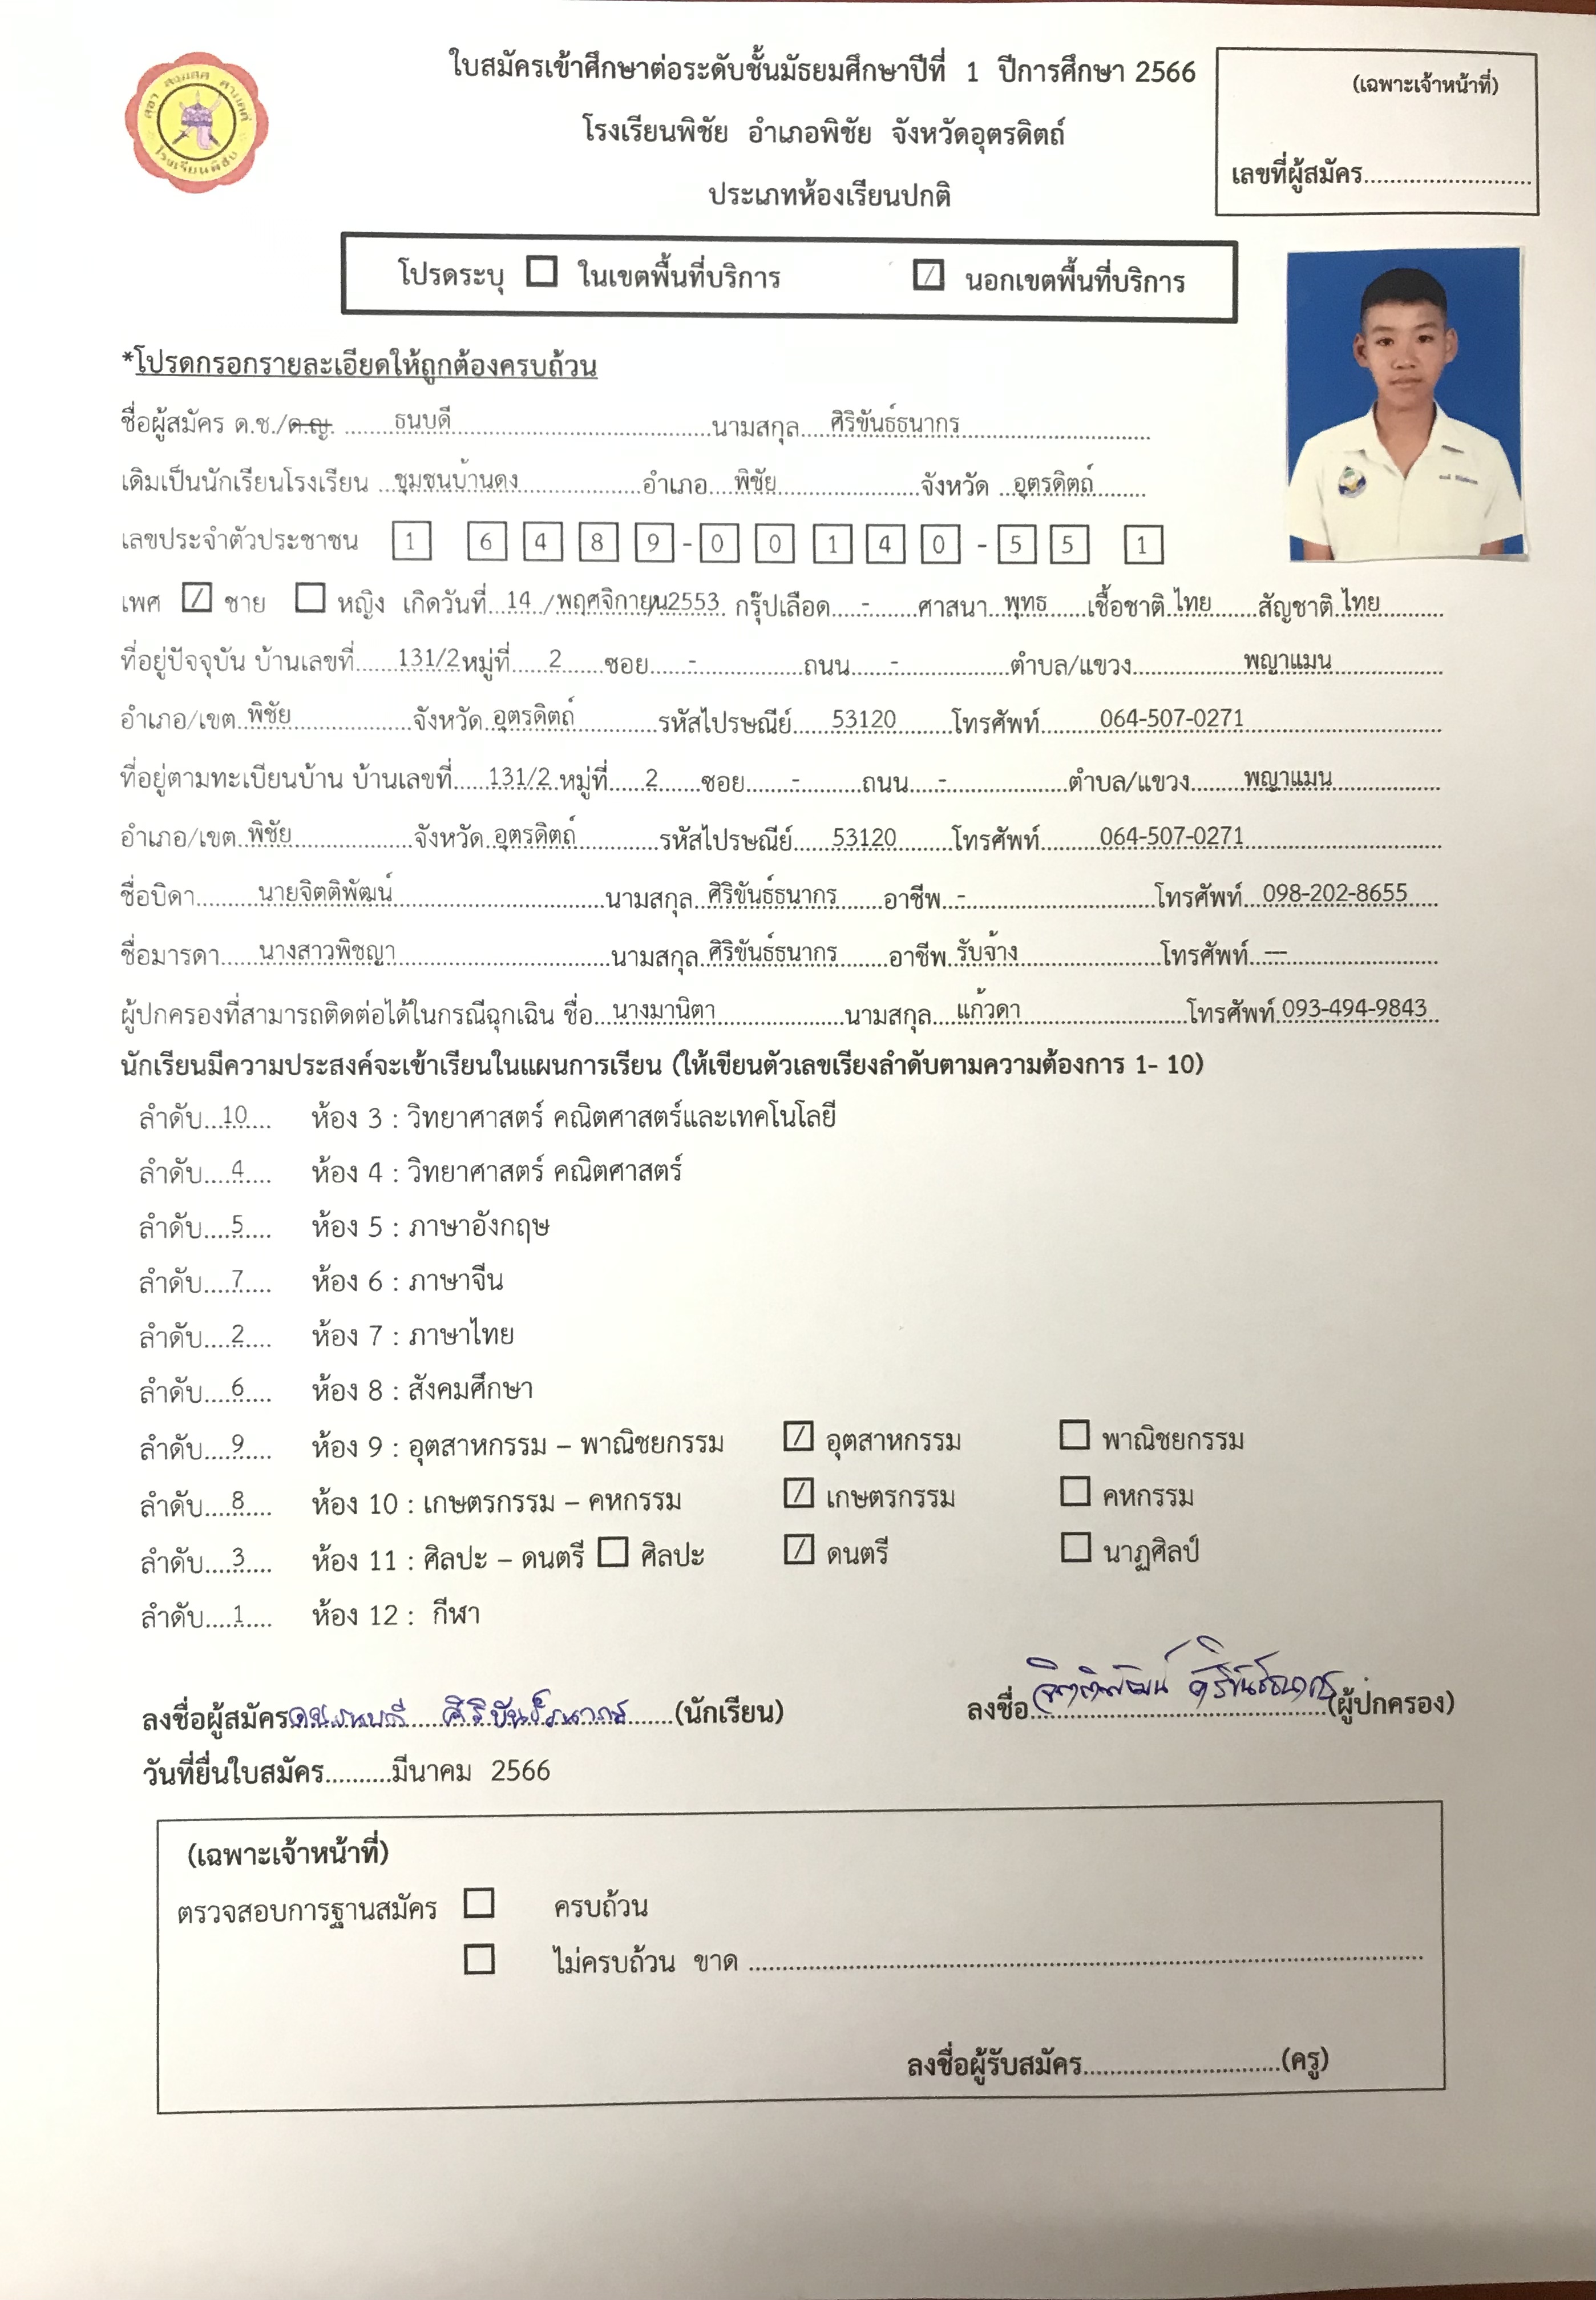 ใบสมัครเข้าศึกษาต่อระดับชั้นมัธยมศึกษาปีที่ 1 ปีการศึกษา 2566
(เฉพาะเจ้าหน้าที่)
โรงเรียนพิชัย อำเภอพิชัย จังหวัดอุตรดิตถ์
เลขที่ผู้สมัคร..........................
ประเภทห้องเรียนปกติ
โรงเรียนพิชัย
โปรดระบุ ☐ ในเขตพื้นที่บริการ ☑ นอกเขตพื้นที่บริการ
*โปรดกรอกรายละเอียดให้ถูกต้องครบถ้วน
ชื่อผู้สมัคร ด.ช./ด.ญ. ........ธนบดี........นามสกุล....ศิริขันธ์ธนากร........
เดิมเป็นนักเรียนโรงเรียน ..ชุมชนบ้านดง........อำเภอ....พิชัย........จังหวัด ..อุตรดิตถ์........
เลขประจำตัวประชาชน 1 6 4 8 9 - 0 0 1 4 0 - 5 5 1
เพศ ☑ ชาย ☐ หญิง เกิดวันที่..14../พฤศจิกายน/2553. กรุ๊ปเลือด....-......ศาสนา..พุทธ.....เชื้อชาติ.ไทย......สัญชาติ.ไทย........
ที่อยู่ปัจจุบัน บ้านเลขที่......131/2หมู่ที่.....2......ซอย.....-........ถนน.....-........ตำบล/แขวง........พญาแมน........
อำเภอ/เขต..พิชัย........จังหวัด..อุตรดิตถ์........รหัสไปรษณีย์.....53120......โทรศัพท์.......064-507-0271........
ที่อยู่ตามทะเบียนบ้าน บ้านเลขที่.....131/2.หมู่ที่.....2......ซอย......-........ถนน.....-........ตำบล/แขวง........พญาแมน........
อำเภอ/เขต..พิชัย........จังหวัด..อุตรดิตถ์........รหัสไปรษณีย์.....53120......โทรศัพท์.......064-507-0271........
ชื่อบิดา.........นายจิตติพัฒน์........นามสกุล..ศิริขันธ์ธนากร.......อาชีพ..-........โทรศัพท์...098-202-8655.....
ชื่อมารดา......นางสาวพิชญา........นามสกุล..ศิริขันธ์ธนากร.......อาชีพ..รับจ้าง........โทรศัพท์..---........
ผู้ปกครองที่สามารถติดต่อได้ในกรณีฉุกเฉิน ชื่อ...นางมานิตา........นามสกุล....แก้วดา........โทรศัพท์.093-494-9843..
นักเรียนมีความประสงค์จะเข้าเรียนในแผนการเรียน (ให้เขียนตัวเลขเรียงลำดับตามความต้องการ 1- 10)
ลำดับ...10.... ห้อง 3 : วิทยาศาสตร์ คณิตศาสตร์และเทคโนโลยี
ลำดับ....4.... ห้อง 4 : วิทยาศาสตร์ คณิตศาสตร์
ลำดับ....5.... ห้อง 5 : ภาษาอังกฤษ
ลำดับ....7.... ห้อง 6 : ภาษาจีน
ลำดับ....2.... ห้อง 7 : ภาษาไทย
ลำดับ....6.... ห้อง 8 : สังคมศึกษา
ลำดับ....9.... ห้อง 9 : อุตสาหกรรม – พาณิชยกรรม ☑ อุตสาหกรรม ☐ พาณิชยกรรม
ลำดับ....8.... ห้อง 10 : เกษตรกรรม – คหกรรม ☑ เกษตรกรรม ☐ คหกรรม
ลำดับ....3.... ห้อง 11 : ศิลปะ – ดนตรี ☐ ศิลปะ ☑ ดนตรี ☐ นาฏศิลป์
ลำดับ....1.... ห้อง 12 : กีฬา
ลงชื่อผู้สมัคร ด.ช.ธนบดี ศิริขันธ์ธนากร.......(นักเรียน) ลงชื่อ จิตติพัฒน์ ศิริขันธ์ธนากร (ผู้ปกครอง)
วันที่ยื่นใบสมัคร..........มีนาคม 2566
(เฉพาะเจ้าหน้าที่)
ตรวจสอบการฐานสมัคร ☐ ครบถ้วน
☐ ไม่ครบถ้วน ขาด ................................................
ลงชื่อผู้รับสมัคร..............................(ครู)